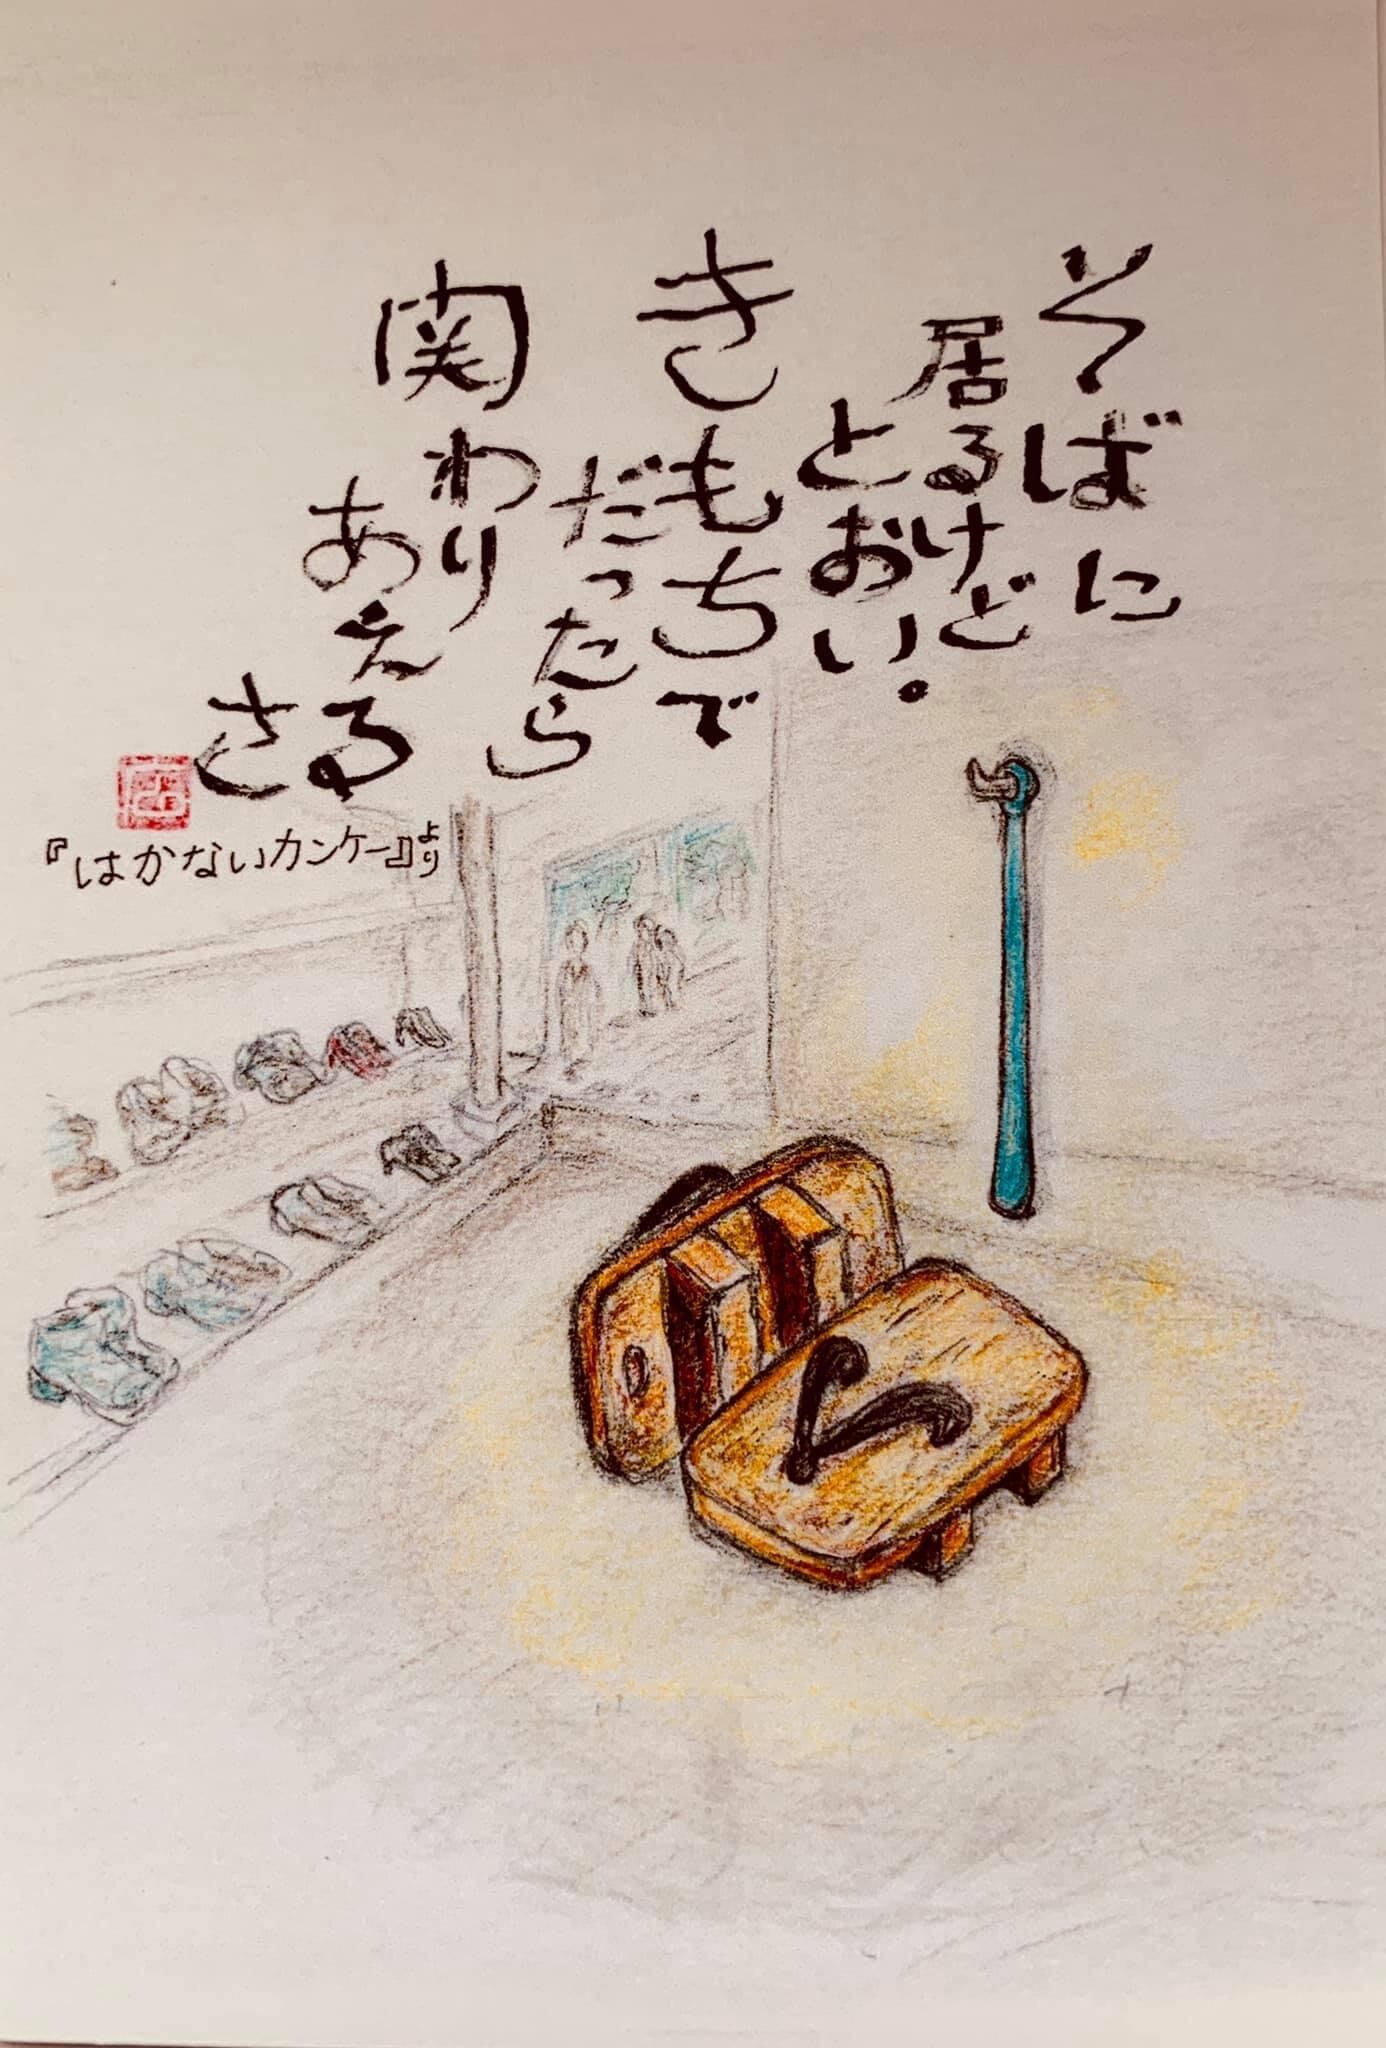 そばに
居るけど
とおい。
きもちで
だったら
関わり
あえる
さ
『はかないカンケー』より